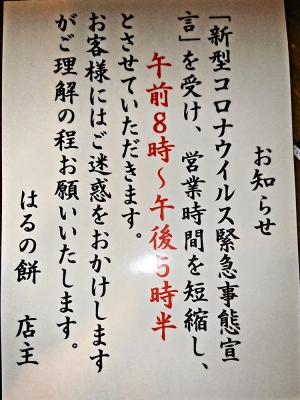 お知らせ
「新型コロナウイルス緊急事態宣
言」を受け、営業時間を短縮し、
午前8時～午後5時半
とさせていただきます。
お客様にはご迷惑をおかけします
がご理解の程お願いいたします。
はるの餅　店主